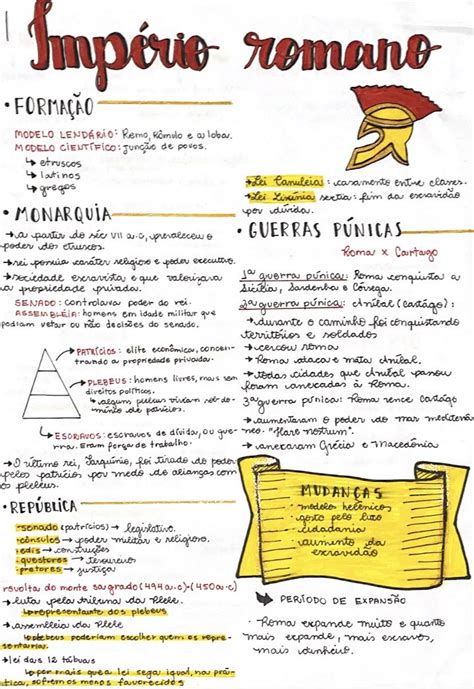 Império romano
• FORMAÇÃO
MODELO LENDÁRIO: Remo, Rômulo e a loba.
MODELO CIENTÍFICO: junção de povos.
↳ etruscos
↳ latinos
↳ gregos
• MONARQUIA
→ a partir do séc VII a.c, prevaleceu o
poder dos etruscos.
→ rei possuía caráter religioso e poder executivo.
→ sociedade escravista e que valorizava
a propriedade privada.
SENADO: controlava poder do rei.
ASSEMBLÉIA: homens em idade militar que
podiam vetar ou não decisões do senado.
PATRÍCIOS: elite econômica, concen-
trando a propriedade privada.
PLEBEUS: homens livres, mas sem
direitos políticos.
↳ alguns plebeus viviam sob do-
mínio de patrícios.
↳ ESCRAVOS: escravos de dívida, ou gue-
rra. Eram força de trabalho.
→ O último rei, Tarquínio, foi tirado do poder
pelos patrícios por medo de alianças com
os plebeus.
• REPÚBLICA
→ senado (patrícios) → legislativo.
→ cônsules → poder militar e religioso.
→ edis → construções
→ questores → tesoureiro
→ pretores → justiça
revolta do monte sagrado (494 a.c) - (450 a.c)
→ luta pela tribuna da plebe.
↳ representante dos plebeus
→ assembléia da plebe
↳ plebeus poderiam escolher quem os repre-
sentaria.
→ lei das 12 tábuas
↳ por mais que a lei seja igual, na prá-
tica, sofremos menos favorecidos
→ Lei Canuleia: casamento entre classes.
→ Lei Licínia sextia: fim da escravidão
por dívida.
• GUERRAS PÚNICAS
Roma x Cartago
1ª guerra púnica: Roma conquista a
Sicília, Sardenha e Córsega.
2ª guerra púnica: Aníbal (Cartago):
→ durante o caminho foi conquistando
territórios e soldados
→ cercou roma
→ Roma ataca e mata Aníbal.
→ todas cidades que Aníbal passou
foram anexadas à Roma.
3ª guerra púnica: Roma vence Cartago
→ aumentaram o poder do mar mediterrâ-
neo: "Mare Nostrum".
→ anexaram Grécia e Macedônia
MUDANÇAS
• modelo helênico
• gosto pelo luxo
• cidadania
• aumento da
escravidão
→ PERÍODO DE EXPANSÃO
• Roma expande muito e quanto
mais expande, mais escravos,
mais dinheiro.